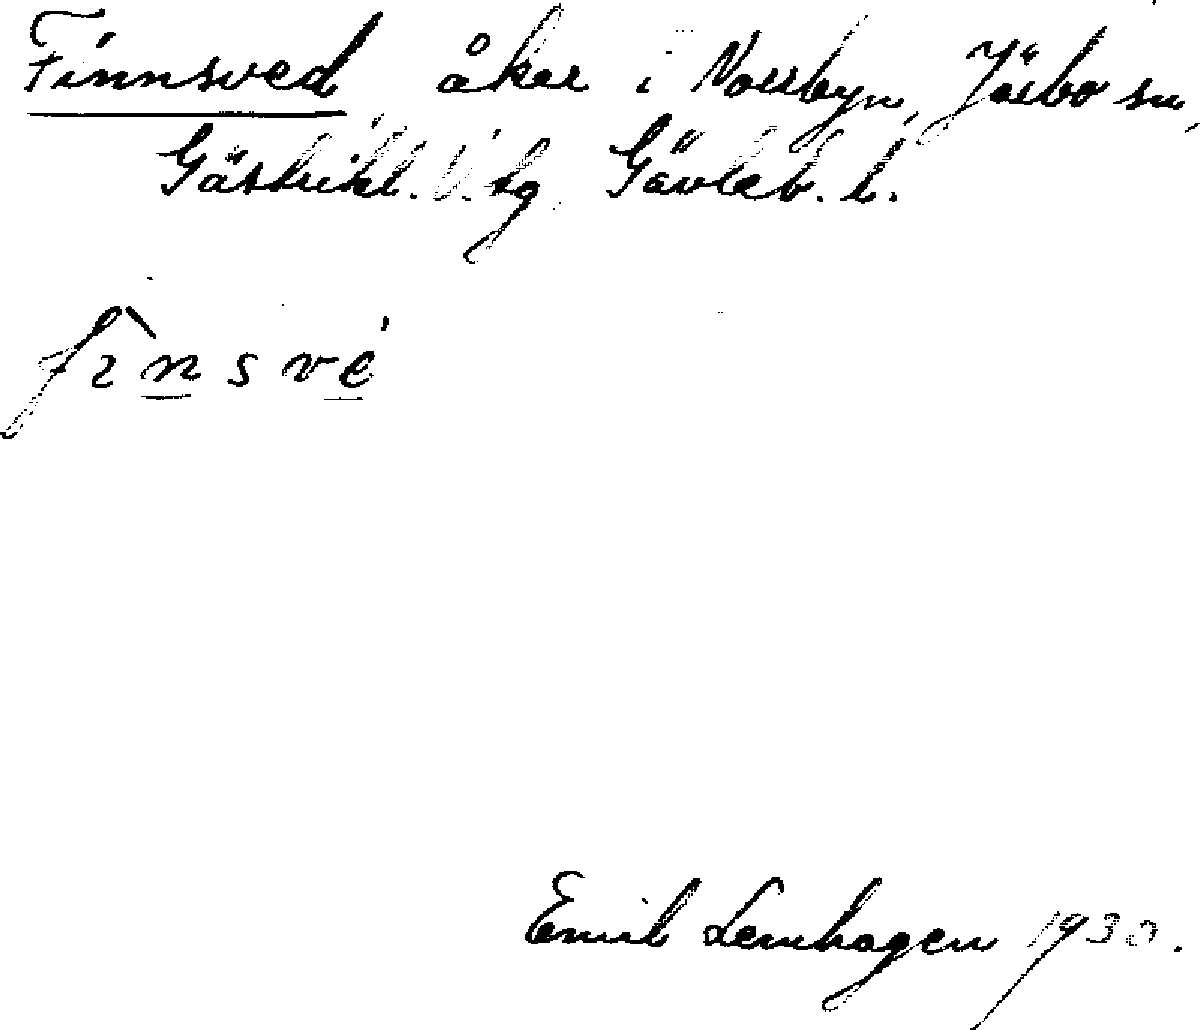 Finnsved åker i Norrbyn, Järbo sn,
Gästrikl. V. tg Gävleb. l.
fìnsvé
Emil Lemhagen 1930.